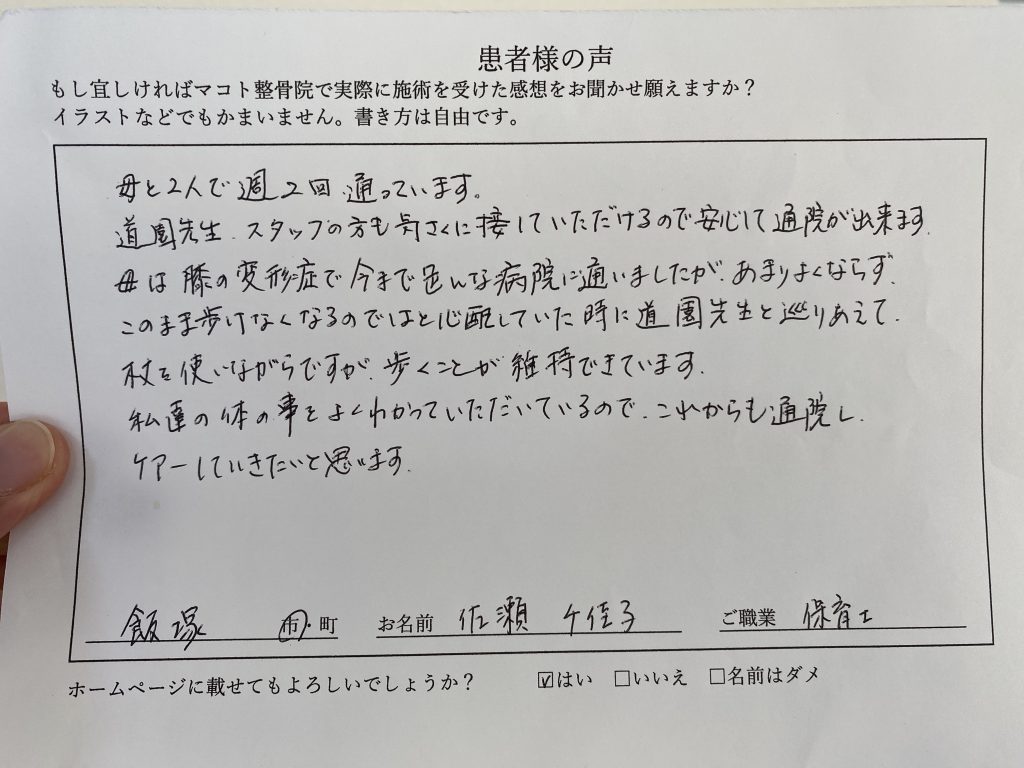 患者様の声
もし宜しければマコト整骨院で実際に施術を受けた感想をお聞かせ願えますか？
イラストなどでもかまいません。書き方は自由です。
母と2人で週2回通っています。
道園先生、スタッフの方も気さくに接していただけるので安心して通院が出来ます。
母は膝の変形症で今まで色んな病院に通いましたが、あまりよくならず、
このまま歩けなくなるのではと心配していた時に道園先生と巡りあえて、
杖を使いながらですが、歩くことが維持できています。
私達の体の事をよくわかっていただいているので、これからも通院し、
ケアーしていきたいと思います。
飯塚 市・町 お名前 佐瀬 佳子 ご職業 保育士
ホームページに載せてもよろしいでしょうか？ ☑はい □いいえ □名前はダメ